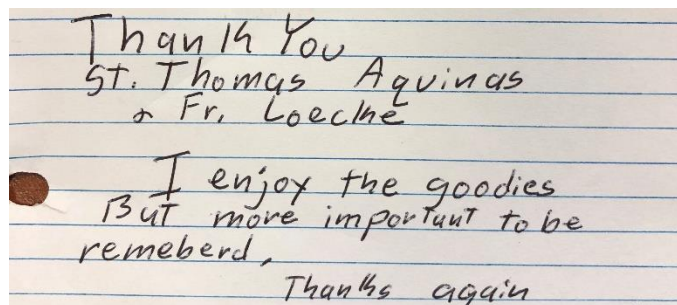 Thank You
St. Thomas Aquinas
& Fr. Loecke
I enjoy the goodies
But more important to be
remeberd,
Thanks again